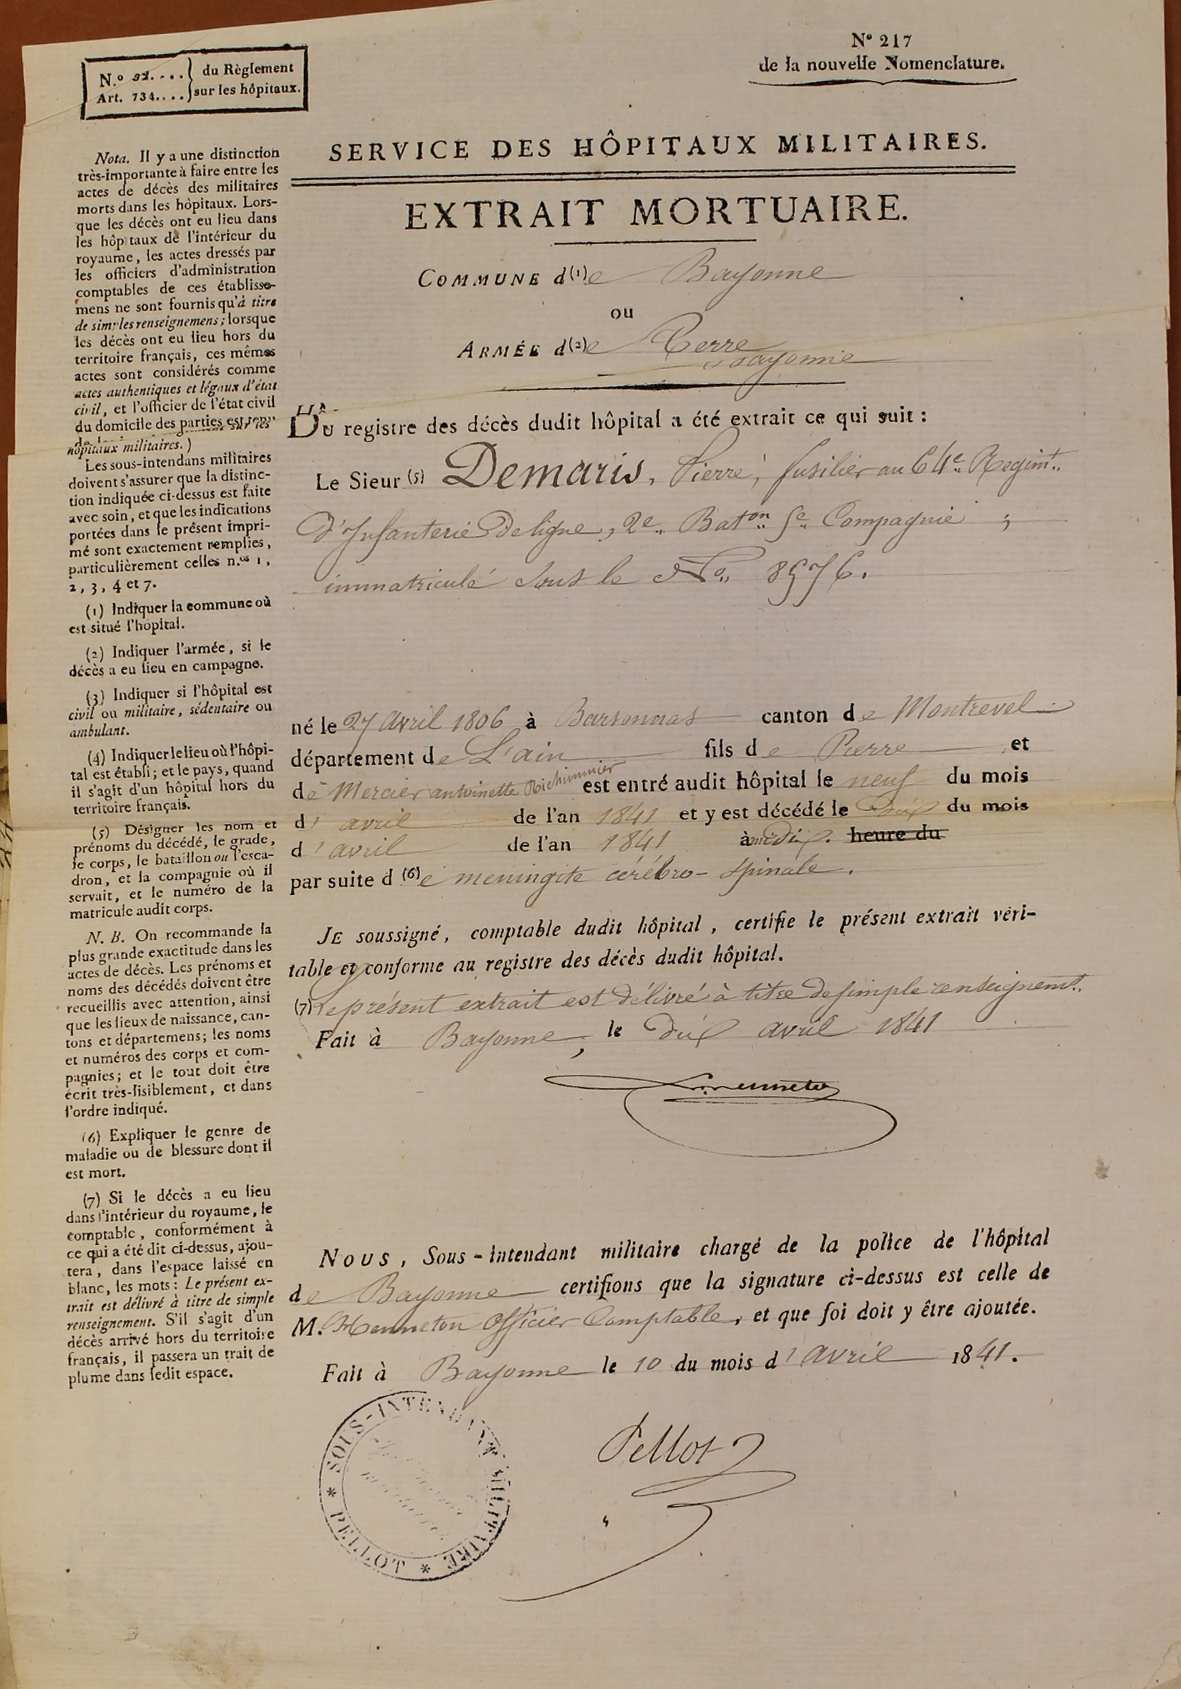 N.º 92.... du Règlement
Art. 734.... sur les hôpitaux.
Nº 217
de la nouvelle Nomenclature.
SERVICE DES HÔPITAUX MILITAIRES.
EXTRAIT MORTUAIRE.
COMMUNE d(1)e Bayonne
ou
ARMÉE d(2)e Terre
Bayonne
DU registre des décès dudit hôpital a été extrait ce qui suit :
Le Sieur (5) Demaris, Pierre, fusilier au 64e Regimt.
d'Infanterie de ligne, 2e Baton 5e Compagnie ;
immatriculé sous le No. 8576.
né le 27 avril 1806 à canton de Montrevel
département de L'ain fils de Pierre et
de Mercier antoinette est entré audit hôpital le neuf du mois
d'avril de l'an 1841 et y est décédé le Dix du mois
d'avril de l'an 1841 à midi. heure du
par suite d(6)e meningite cérébro-spinale.
JE soussigné, comptable dudit hôpital, certifie le présent extrait véri-
table et conforme au registre des décès dudit hôpital.
(7) Le présent extrait est délivré à titre de simple renseignemt.
Fait à Bayonne, le dix avril 1841
NOUS, Sous-Intendant militaire chargé de la police de l'hôpital
de Bayonne certifions que la signature ci-dessus est celle de
M. Menneton officier Comptable, et que foi doit y être ajoutée.
Fait à Bayonne le 10 du mois d'avril 1841.
Pellot
* SOUS-INTENDANT MILITAIRE * PELLOT
Nota. Il y a une distinction
très-importante à faire entre les
actes de décès des militaires
morts dans les hôpitaux. Lors-
que les décès ont eu lieu dans
les hôpitaux de l'intérieur du
royaume, les actes dressés par
les officiers d'administration
comptables de ces établisse-
mens ne sont fournis qu'à titre
de simples renseignemens; lorsque
les décès ont eu lieu hors du
territoire français, ces mêmes
actes sont considérés comme
actes authentiques et légaux d'état
civil, et l'officier de l'état civil
du domicile des parties est
hôpitaux militaires.)
Les sous-intendans militaires
doivent s'assurer que la distinc-
tion indiquée ci-dessus est faite
avec soin, et que les indications
portées dans le présent impri-
mé sont exactement remplies,
particulièrement celles n.os 1,
2, 3, 4 et 7.
(1) Indiquer la commune où
est situé l'hôpital.
(2) Indiquer l'armée, si le
décès a eu lieu en campagne.
(3) Indiquer si l'hôpital est
civil ou militaire, sédentaire ou
ambulant.
(4) Indiquer le lieu où l'hôpi-
tal est établi; et le pays, quand
il s'agit d'un hôpital hors du
territoire français.
(5) Désigner les nom et
prénoms du décédé, le grade,
le corps, le bataillon ou l'esca-
dron, et la compagnie où il
servait, et le numéro de la
matricule audit corps.
N. B. On recommande la
plus grande exactitude dans les
actes de décès. Les prénoms et
noms des décédés doivent être
recueillis avec attention, ainsi
que les lieux de naissance, can-
tons et départemens; les noms
et numéros des corps et com-
pagnies; et le tout doit être
écrit très-lisiblement, et dans
l'ordre indiqué.
(6) Expliquer le genre de
maladie ou de blessure dont il
est mort.
(7) Si le décès a eu lieu
dans l'intérieur du royaume, le
comptable, conformément à
ce qui a été dit ci-dessus, ajou-
tera, dans l'espace laissé en
blanc, les mots: Le présent ex-
trait est délivré à titre de simple
renseignement. S'il s'agit d'un
décès arrivé hors du territoire
français, il passera un trait de
plume dans ledit espace.